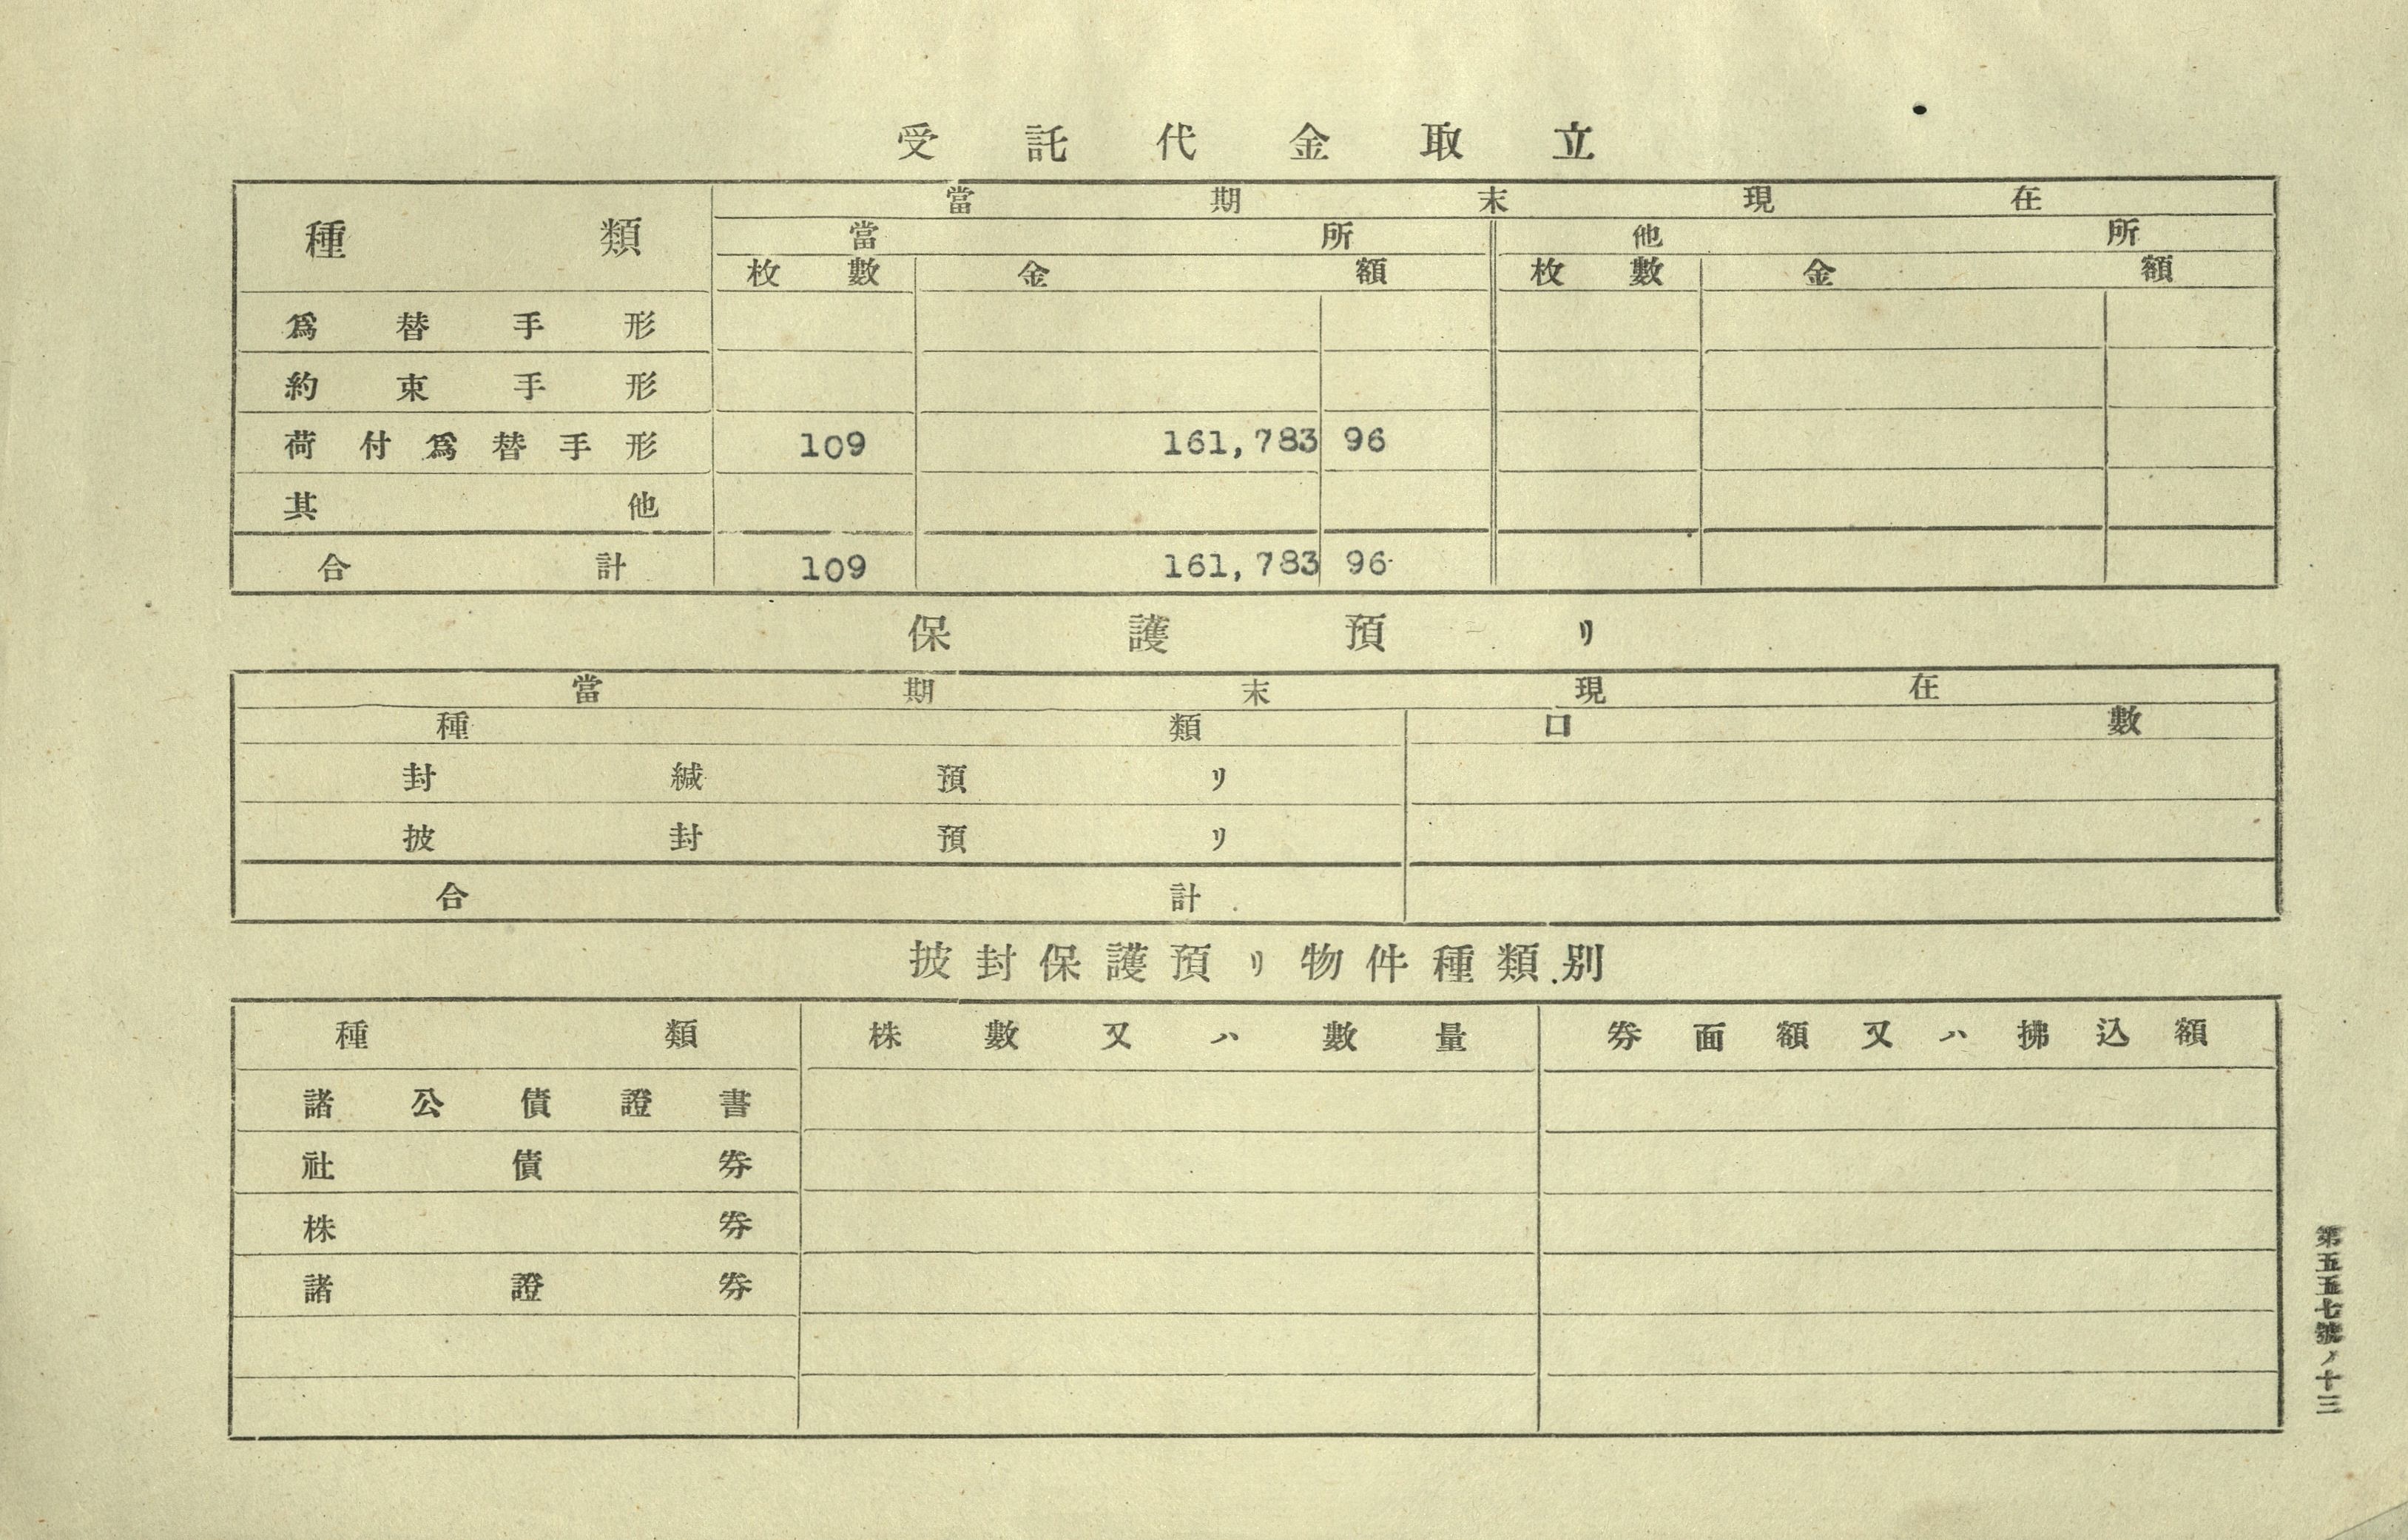 受託代金取立
種類 當期末現在
當所 他所
枚數 金額 枚數 金額
爲替手形
約束手形
荷付爲替手形 109 161,783 96
其他
合計 109 161,783 96
保護預リ
當期末現在
種類 口數
封緘預リ
披封預リ
合計
披封保護預リ物件種類別
種類 株數又ハ數量 券面額又ハ拂込額
諸公債證書
社債券
株券
諸證券
第五五七號ノ十三